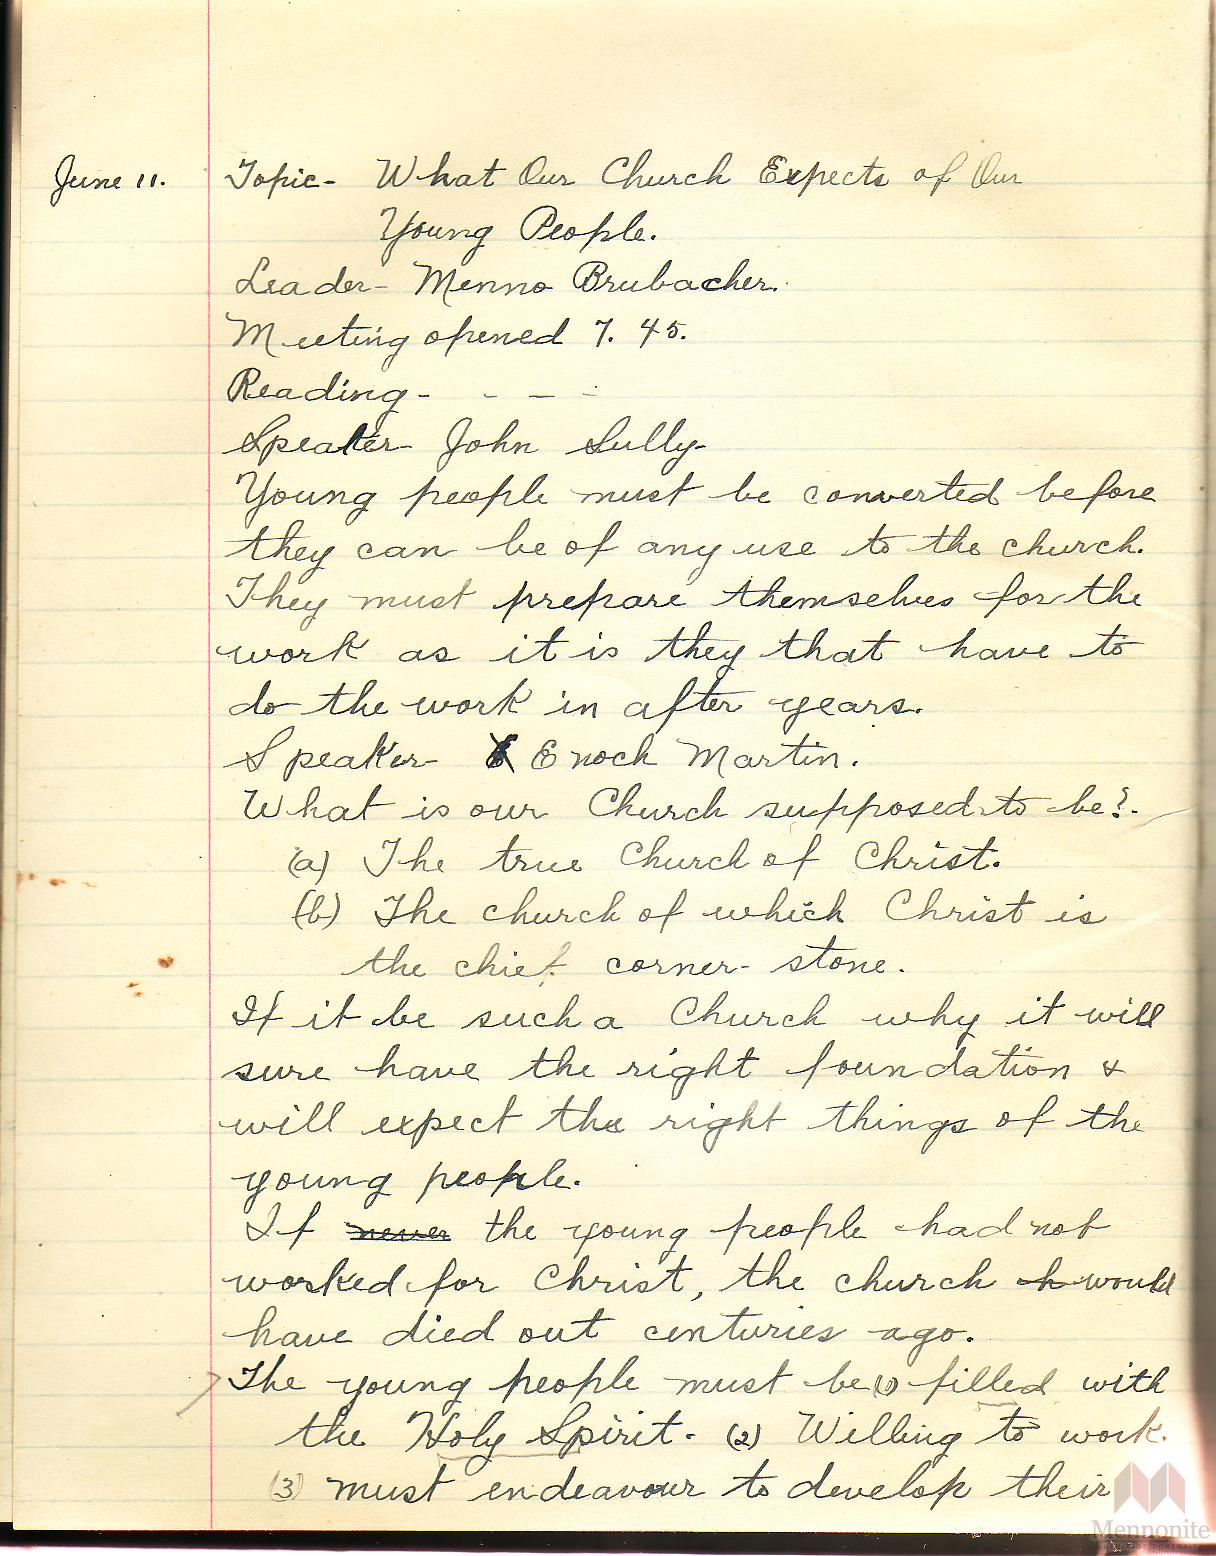 June 11. Topic- What Our Church Expects of Our
Young People.
Leader- Menno Brubacher.
Meeting opened 7.45.
Reading- - - -
Speaker- John Sully-
Young people must be converted before
they can be of any use to the church.
They must prepare themselves for the
work as it is they that have to
do the work in after years.
Speaker- Enoch Martin.
What is our Church supposed to be?
(a) The true Church of Christ.
(b) The church of which Christ is
the chief corner-stone.
If it be such a Church why it will
sure have the right foundation &
will expect the right things of the
young people.
If never the young people had not
worked for Christ, the church h would
have died out centuries ago.
The young people must be (1) filled with
the Holy Spirit. (2) Willing to work.
(3) must endeavour to develop their
Mennonite